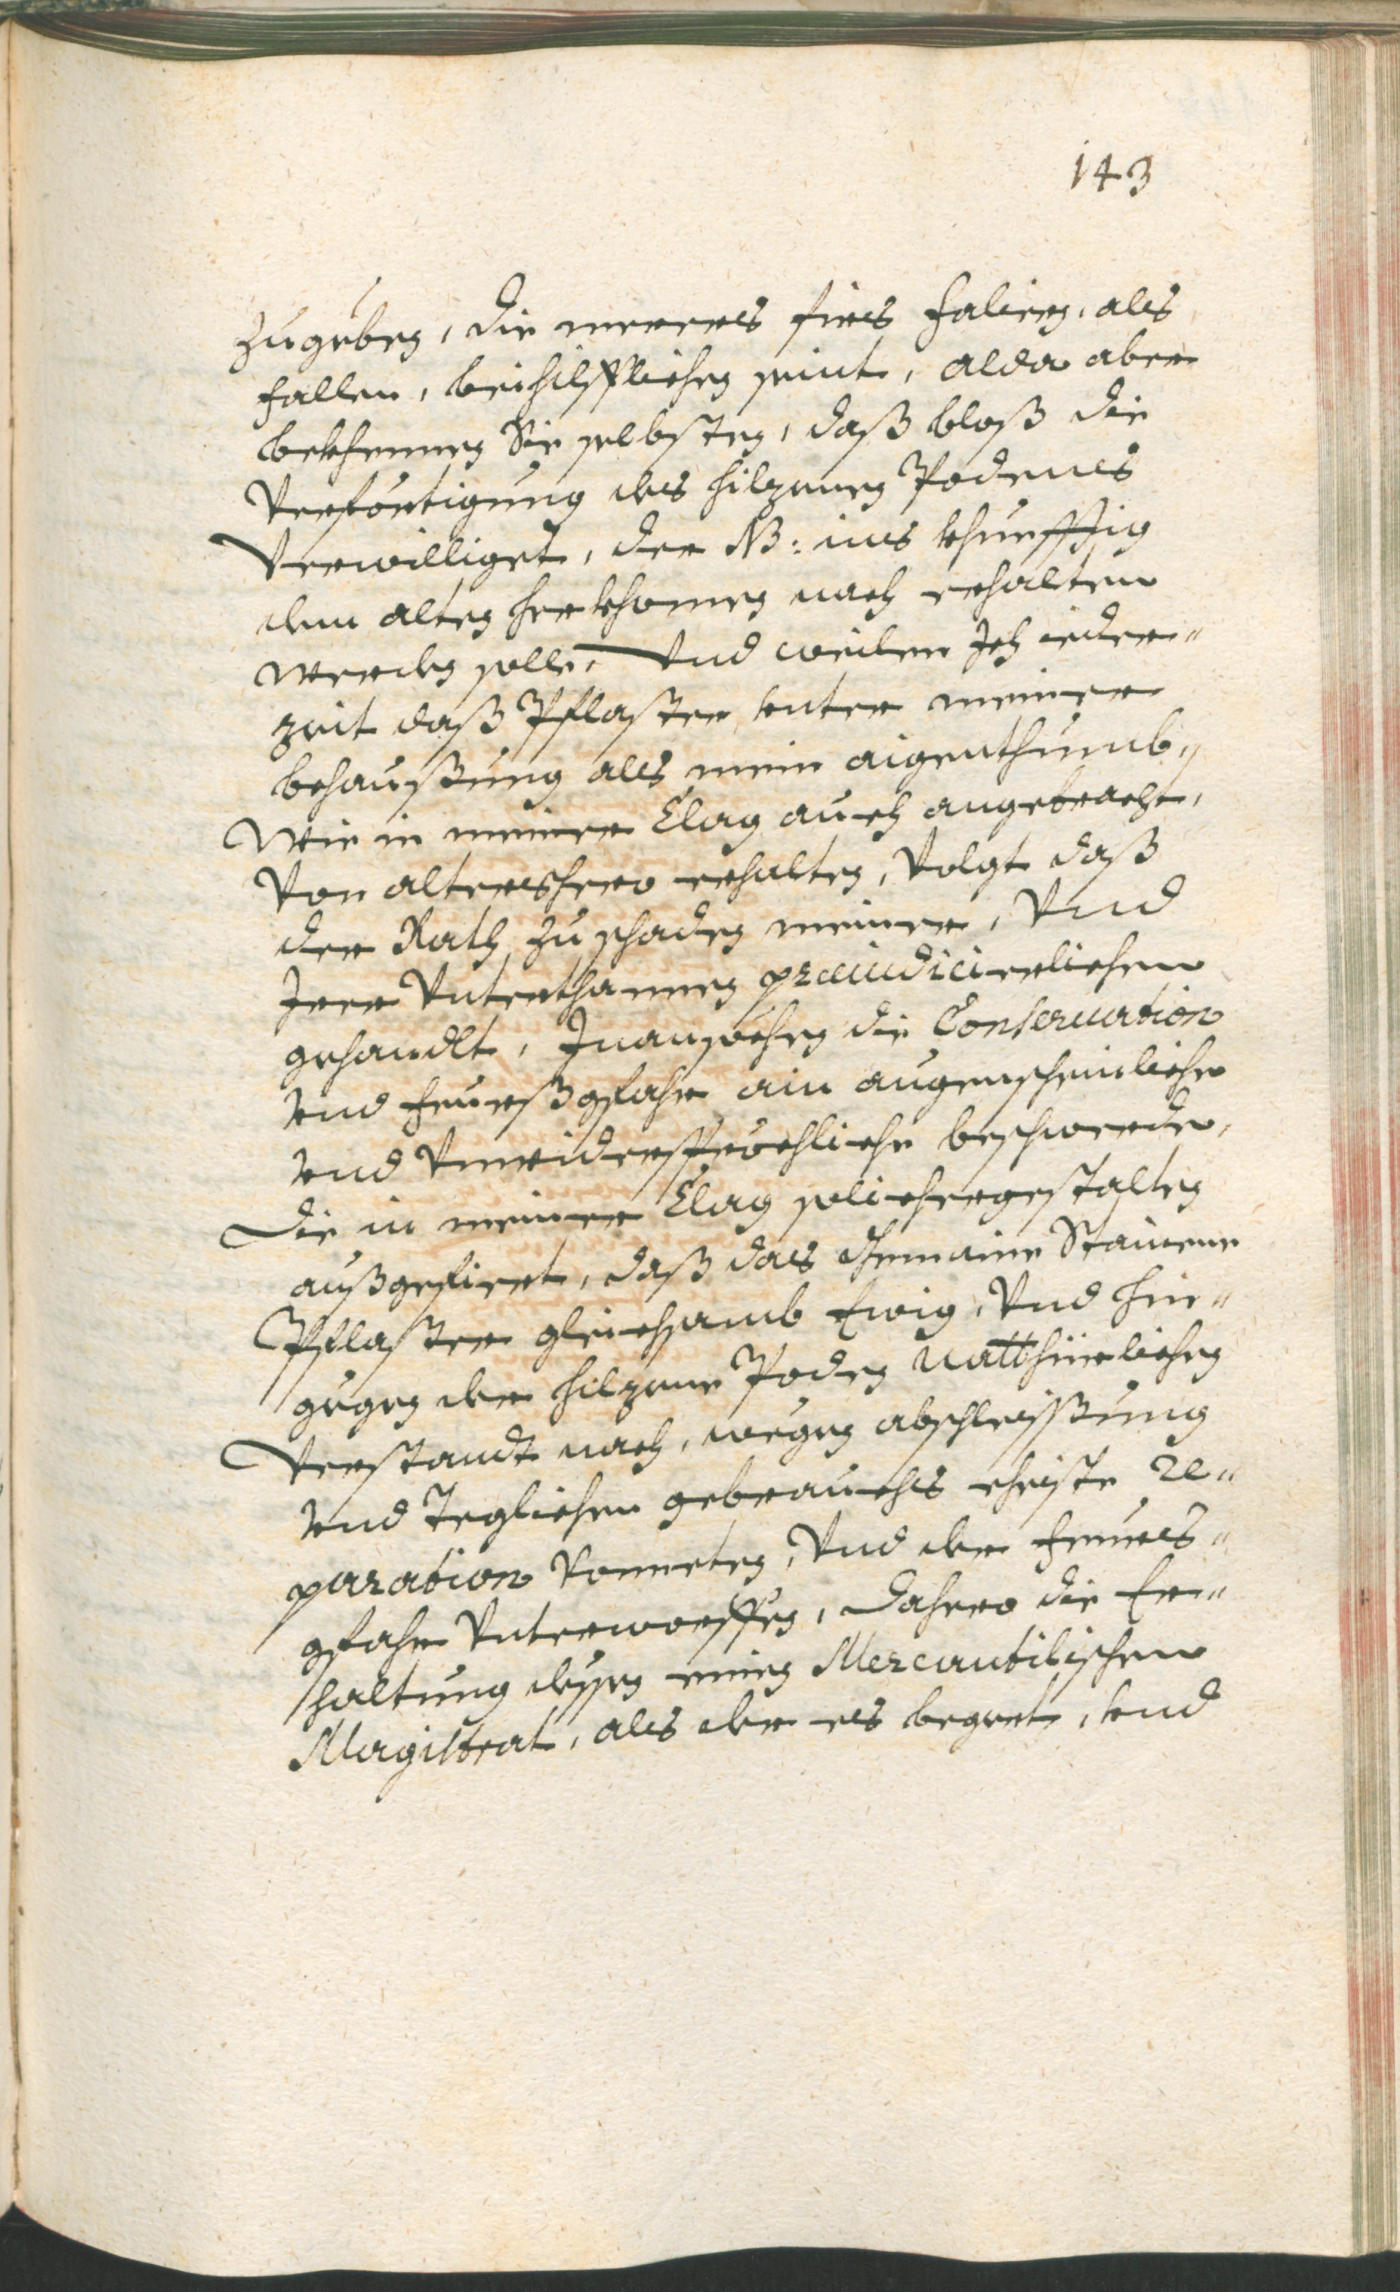 143
zugeben, die merers fürs falieren, als
fallen, beihilfflichen seint, alda aber
bekhennen Sie selbsten, daß bloß die
Verförtigung des hilzenen Podens
Verwilliget, der NB: ins khunfftig
dem alten herkhomen nach erhalten
werden solle, Vnd weilen Ich ieder"
zeit daß Pflaster vnter meiner
behaußung als mein aigenthumb"
Wie in meiner Clag auch angebracht,
Von altershero erhalten, Volgt daß
der Rath zu schaden meiner, Vnd
Irer Vnterthannen præiudicierlichen
gehandlt, Inansechen die Conseruation
vnd feurßgfahr ain augenscheinliche
vnd Vnwidersprechliche beschwerde,
Die in meiner Clag solichergestalten
außgefiert, daß das Gemaine Stainene
Pflaster gleichsamb Ewig, Vnd hin"
gegen der hilzene Poden natthürlichen
Verstandt nach, wegen abschleissung
vnd Teglichen gebrauchs ehiste re"
paration Vonneten, Vnd der feurs"
gfahr Vnterworffen, Dahero die Er"
haltung dessen einen Mercantilischen
Magistrat, als der es begert, vnd